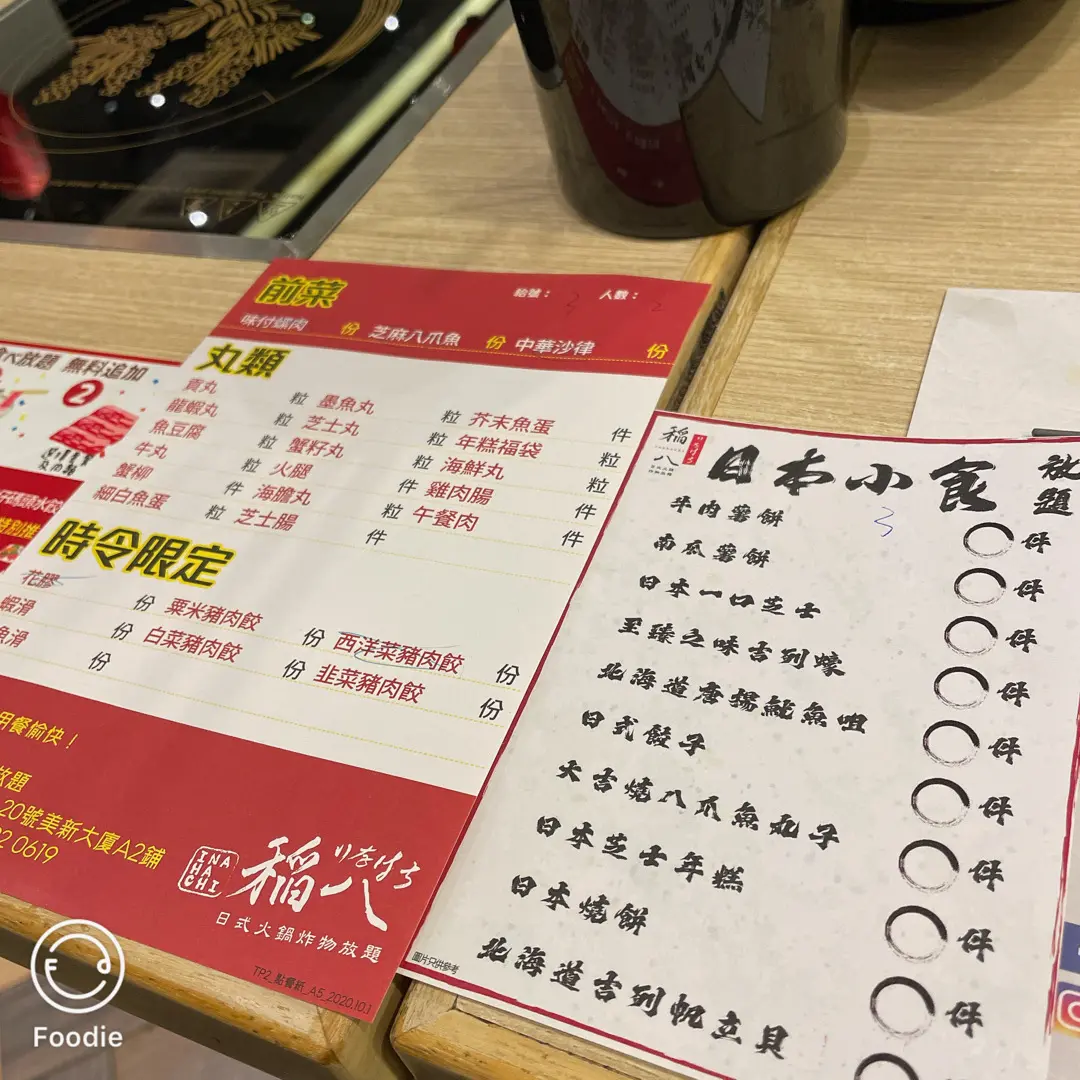 放題 無料追加
2
前菜
枱號：
人數：
味付螺肉 份 芝麻八爪魚 份 中華沙律 份
丸類
貢丸 粒 墨魚丸 粒 芥末魚蛋 件
龍蝦丸 粒 芝士丸 粒 年糕福袋 粒
魚豆腐 粒 蟹籽丸 粒 海鮮丸 粒
牛丸 粒 火腿 件 雞肉腸 件
蟹柳 件 海膽丸 粒 午餐肉 件
細白魚蛋 粒 芝士腸 件
時令限定
花膠 份 粟米豬肉餃 份 西洋菜豬肉餃 份
蝦滑 份 白菜豬肉餃 份 韭菜豬肉餃 份
魚滑 份
用餐愉快！
放題
20號美新大廈A2鋪
2 0619
INA
HA
CHI
稲八
りをはち
日式火鍋炸物放題
TP2_點餐紙_A5_2020.10.1
稲八
日本小食
放題
3
牛肉薯餅 件
南瓜薯餅 件
日本一口芝士 件
至臻之味吉列蠔 件
北海道唐揚魷魚咀 件
日式餃子 件
大吉燒八爪魚丸子 件
日本芝士年糕 件
日本燒餅 件
北海道吉列帆立貝
圖片只供參考
Foodie